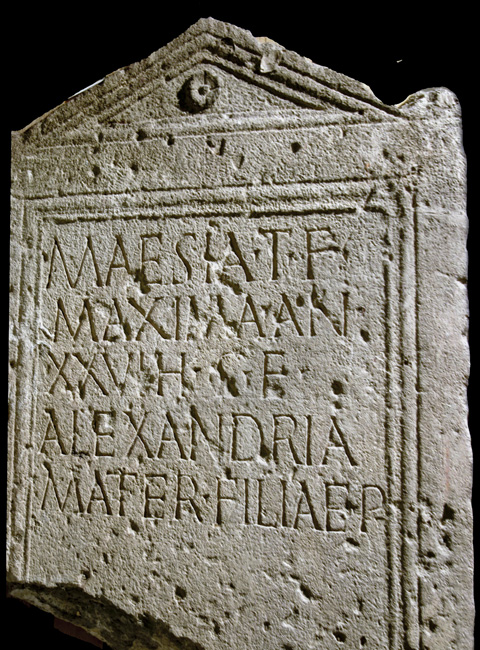 MAESIA·T·F·
MAXIMA·AN
XXVI·H·S·E·
ALEXANDRIA
MATER·FILIAE P